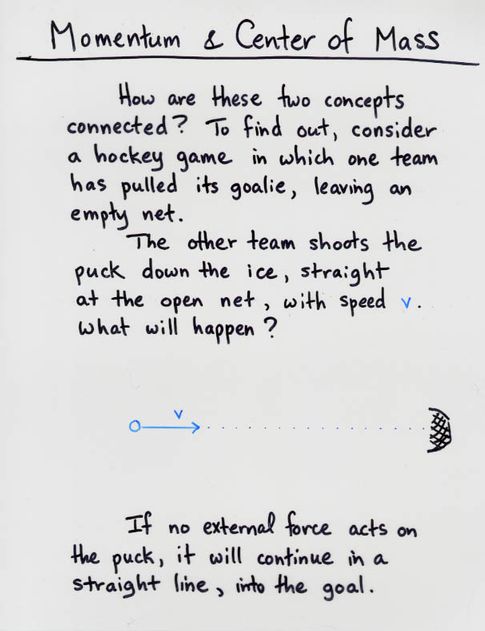 Momentum & Center of Mass
How are these two concepts
connected? To find out, consider
a hockey game in which one team
has pulled its goalie, leaving an
empty net.
The other team shoots the
puck down the ice, straight
at the open net, with speed v.
What will happen?
v
If no external force acts on
the puck, it will continue in a
straight line, into the goal.